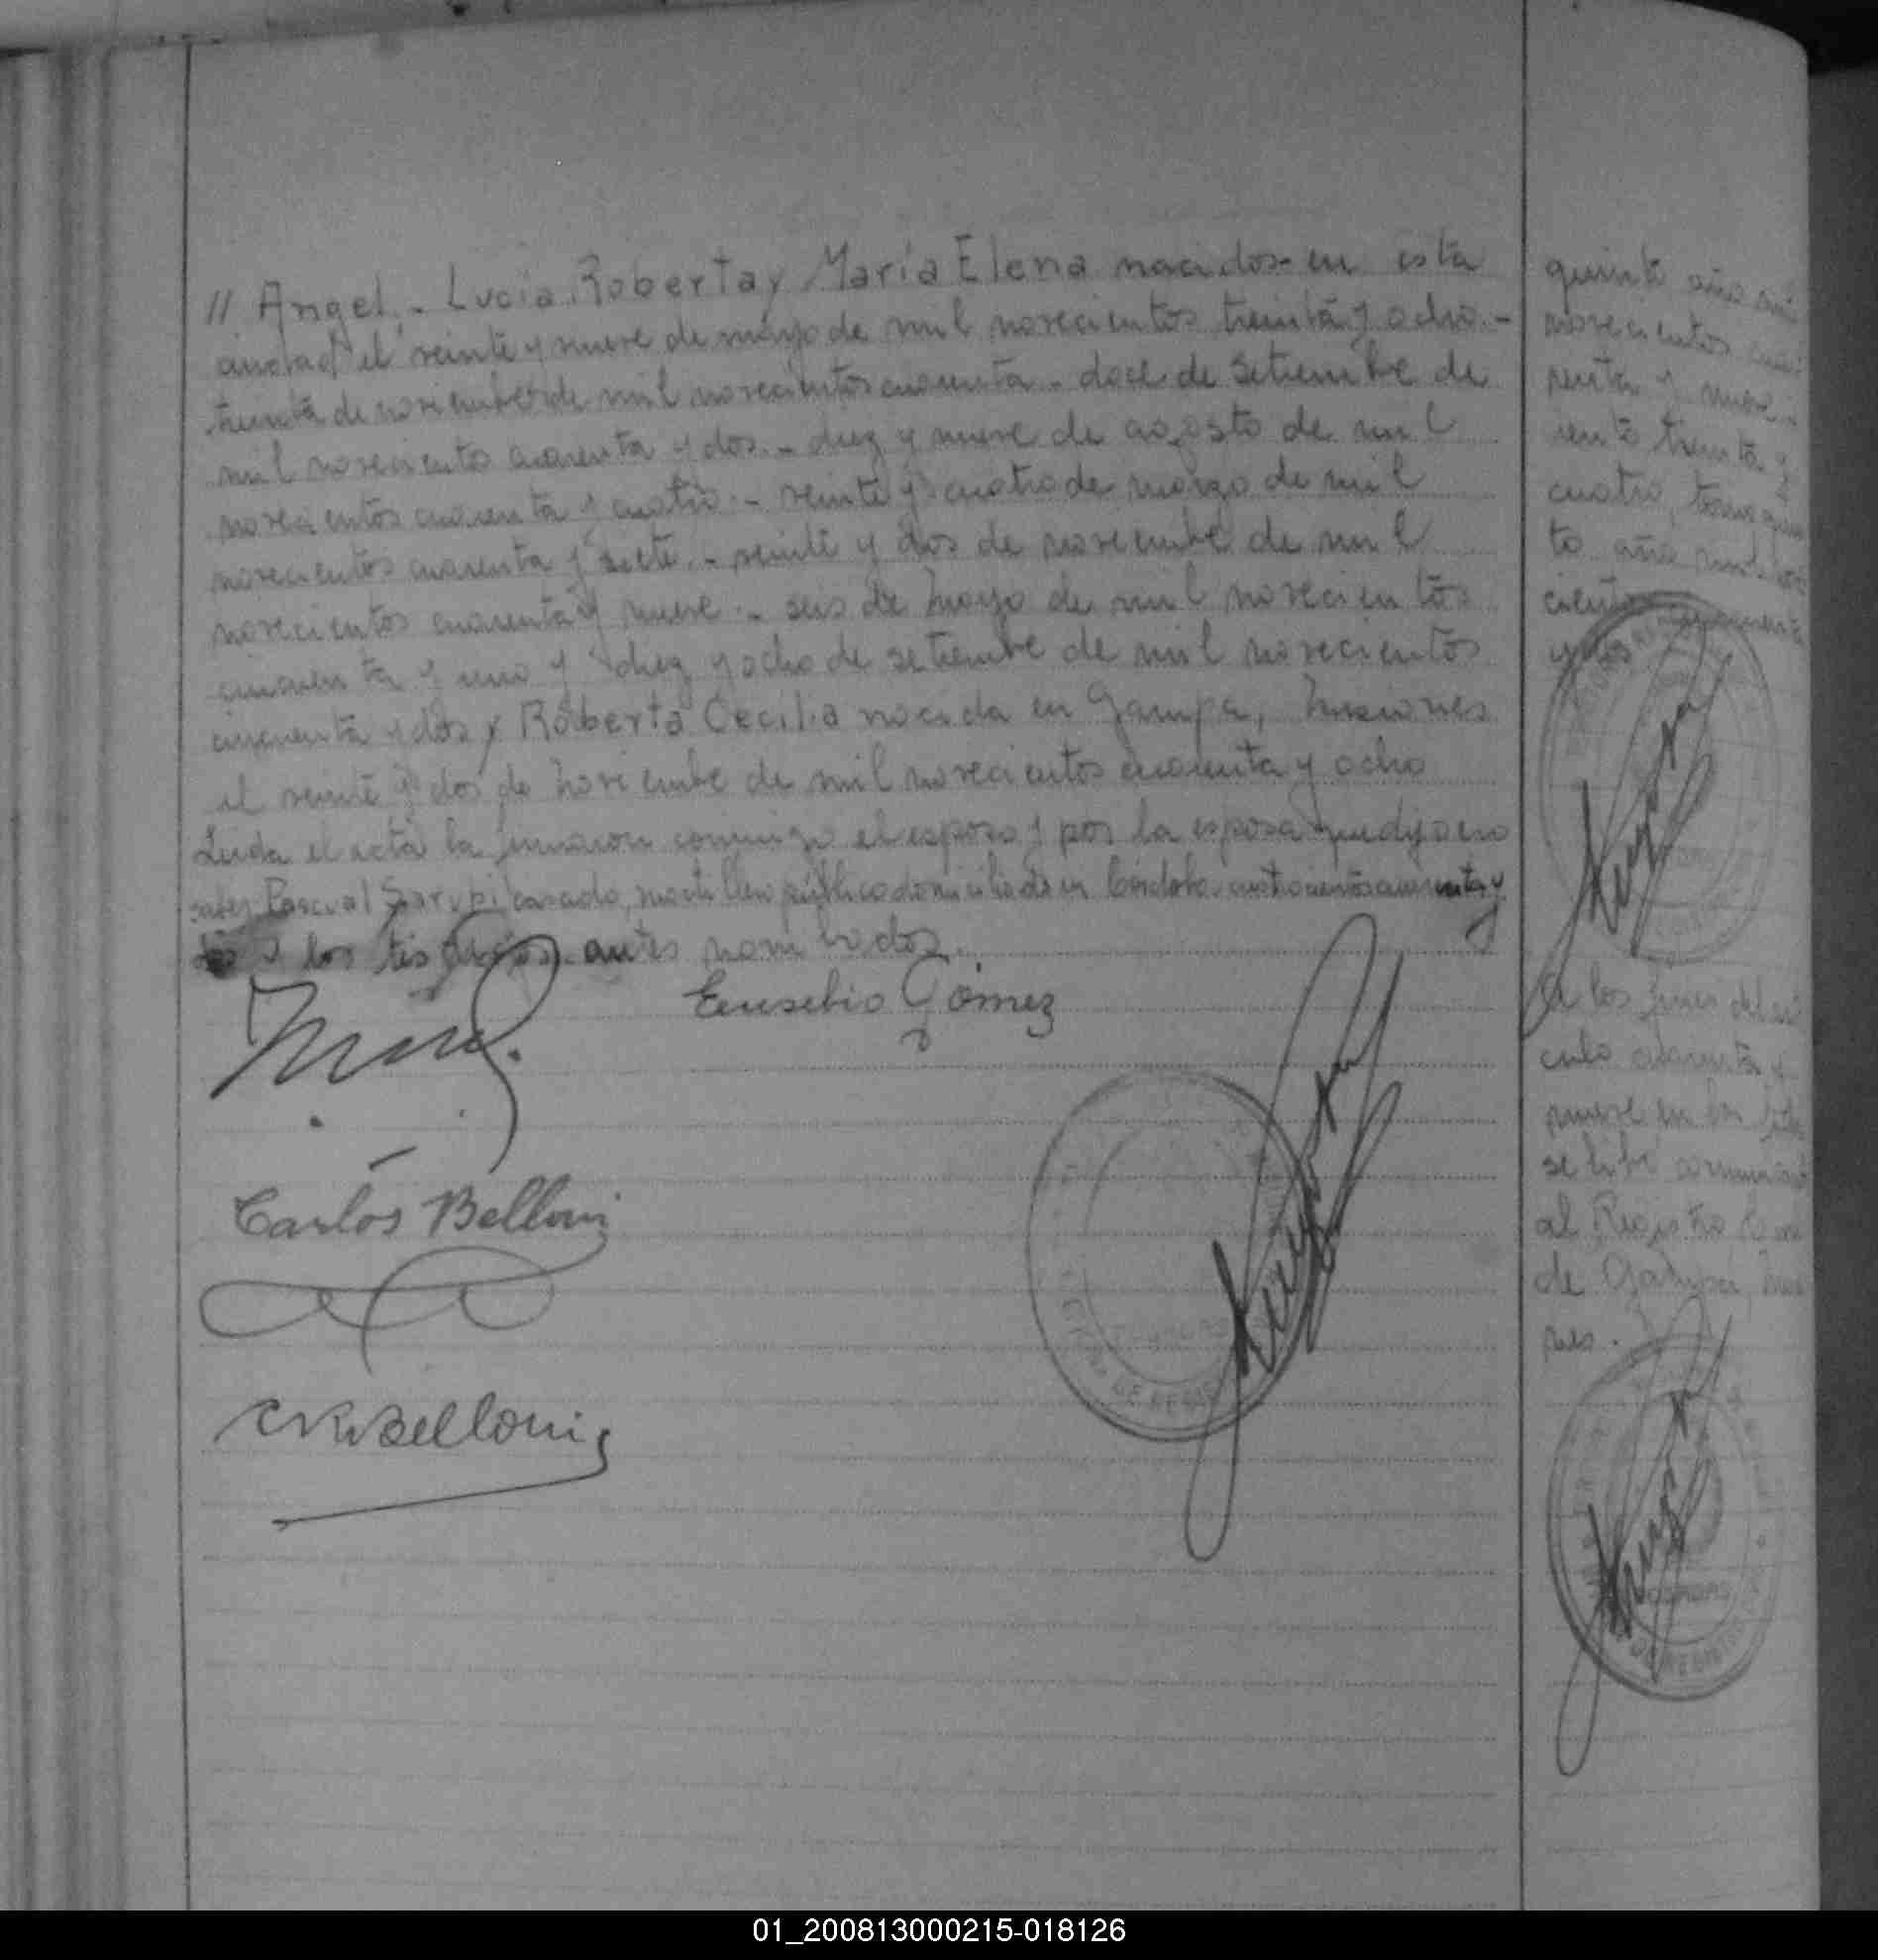 // Angel,- Lucia Roberta y María Elena nacidos en esta
ciudad el veinte y nueve de mayo de mil novecientos treinta y ocho.-
treinta de noviembre de mil novecientos cuarenta.- doce de setiembre de
mil novecientos cuarenta y dos.- diez y nueve de agosto de mil
novecientos cuarenta y cuatro.- veinte y cuatro de marzo de mil
novecientos cuarenta y siete.- veinte y dos de noviembre de mil
novecientos cuarenta y nueve.- seis de mayo de mil novecientos
cincuenta y uno y diez y ocho de setiembre de mil novecientos
cincuenta y dos y Roberta Cecilia nacida en Garupa, Misiones
el veinte y dos de noviembre de mil novecientos cuarenta y ocho
Leida el acta la firmaron conmigo el esposo y por la esposa que dijo no
saber Pascual Sarubi casado, martillero público domiciliado en Córdoba cuatrocientos cuarenta y
dos y los testigos antes nombrados.
Eusebio Gómez
Carlos Belloni
Belloni
quinto año mil
novecientos cuar
enta y nueve.-
treinta y
cuatro, tomo quin
to año mil nove
cientos cincuenta
y dos
A los fines del artí
culo cuarenta y
nueve en
se libró comunicación
al Registro Civil
de Garupa, Misio
nes.
POSADAS
DE REGISTRO
01_200813000215-018126